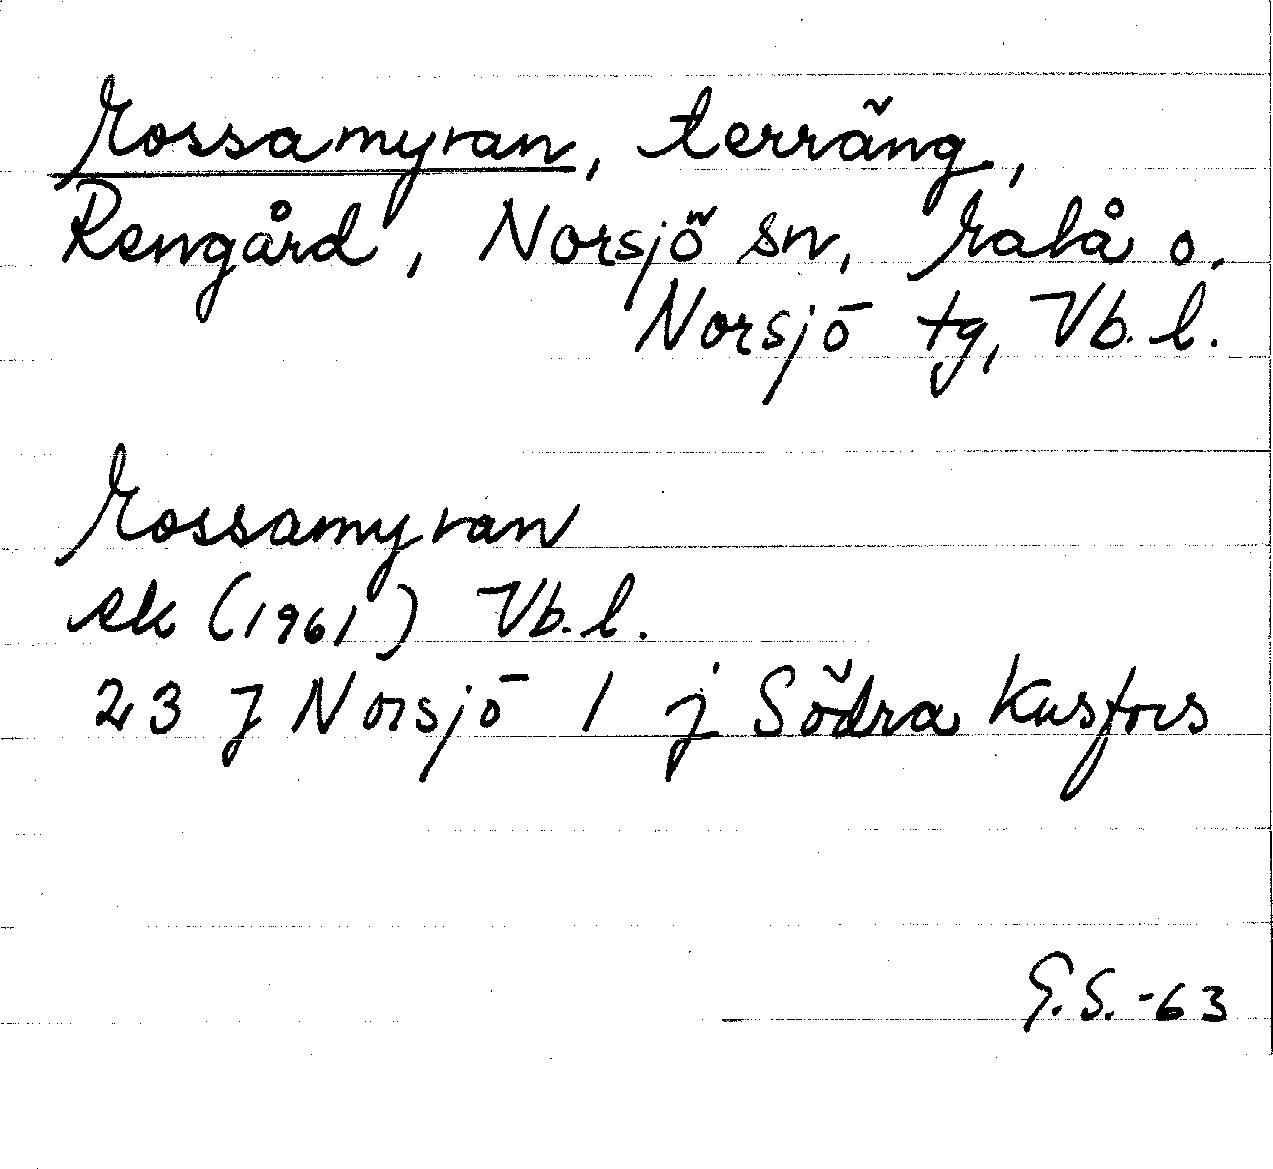 Mossamyran, terräng,
Rengård, Norsjö sn, Malå o.
Norsjö tg, Vb. l.
Mossamyran
ek (1961) Vb. l.
23 J Norsjö 1 j Södra Kusfors
G.S.-63